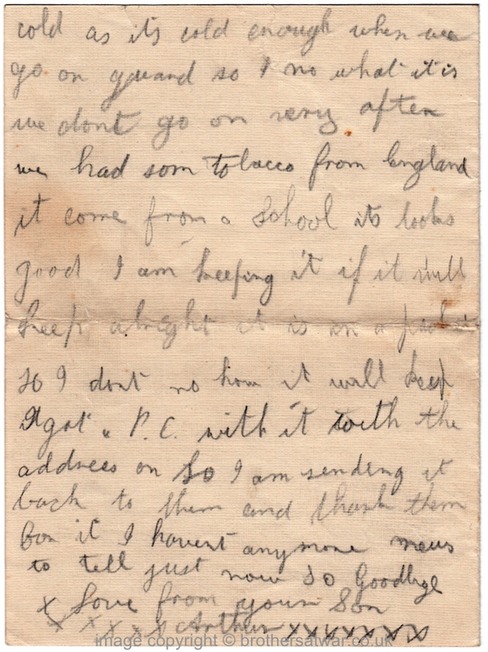 cold as its cold enough when we
go on gauard so I no what it is
we dont go on very after
we had som tobacco from England
it come from a School its looks
good I am keeping it if it will
keep alreght it is in a
so I dont no how it will keep
I got a P.C. with it with the
address on so I am sending it
back to them and thank them
for it I havent anymore news
to tell just now so Goodbye
x Love from your Son
x x x x x Arthur x x x x x x x x
image copyright © brothersatwar.co.uk